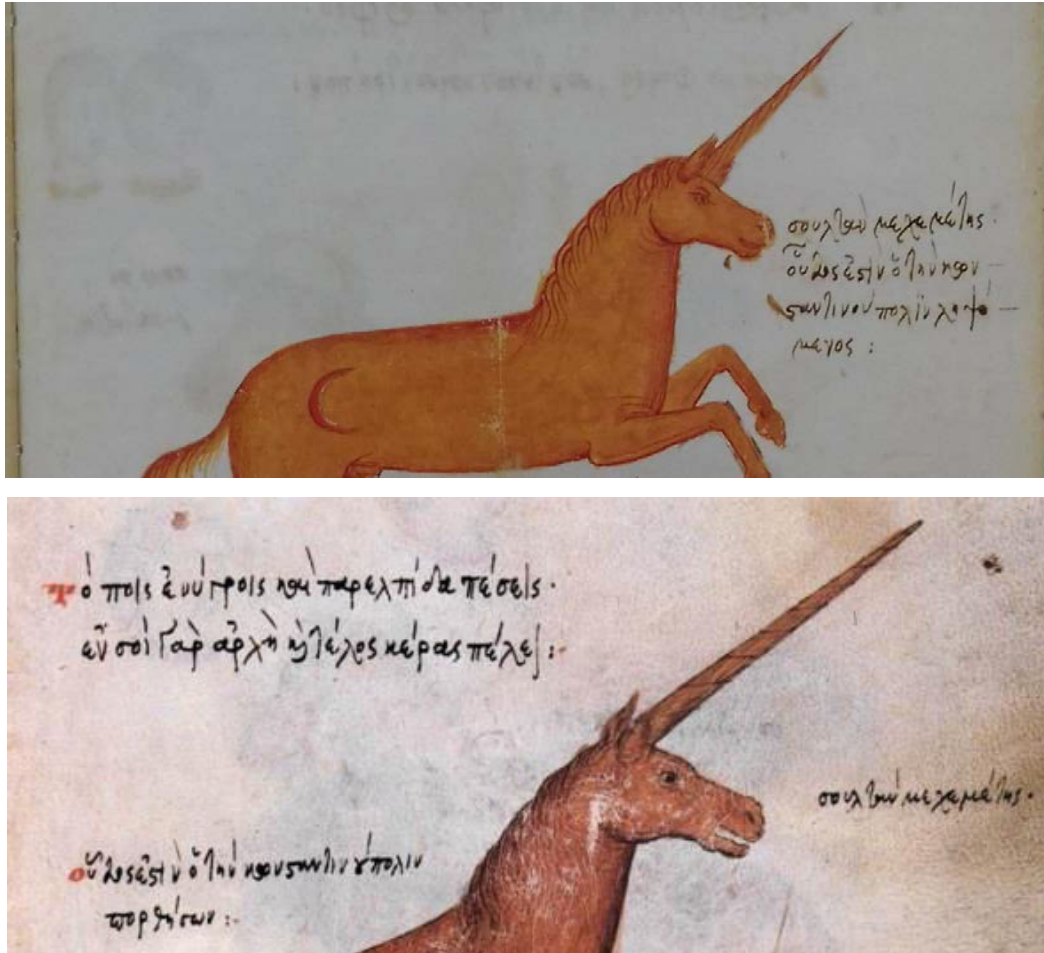 σουλτὰν μεχεμέτης·
οὗτός ἐστὶν ὁ τὴν κων
σταντινούπολιν ληψό
μενος :
ἐν ὑγροῖς καὶ παρελπίδα πέσεις·
ἐν σοὶ γὰρ ἀρχὴ κὶ τέλος κέρας πέλει :·
σουλτὰν μεχεμέτης·
οὗτός ἐστὶν ὁ τὴν κωνσταντινȣ́πολιν
πορθήσων :·